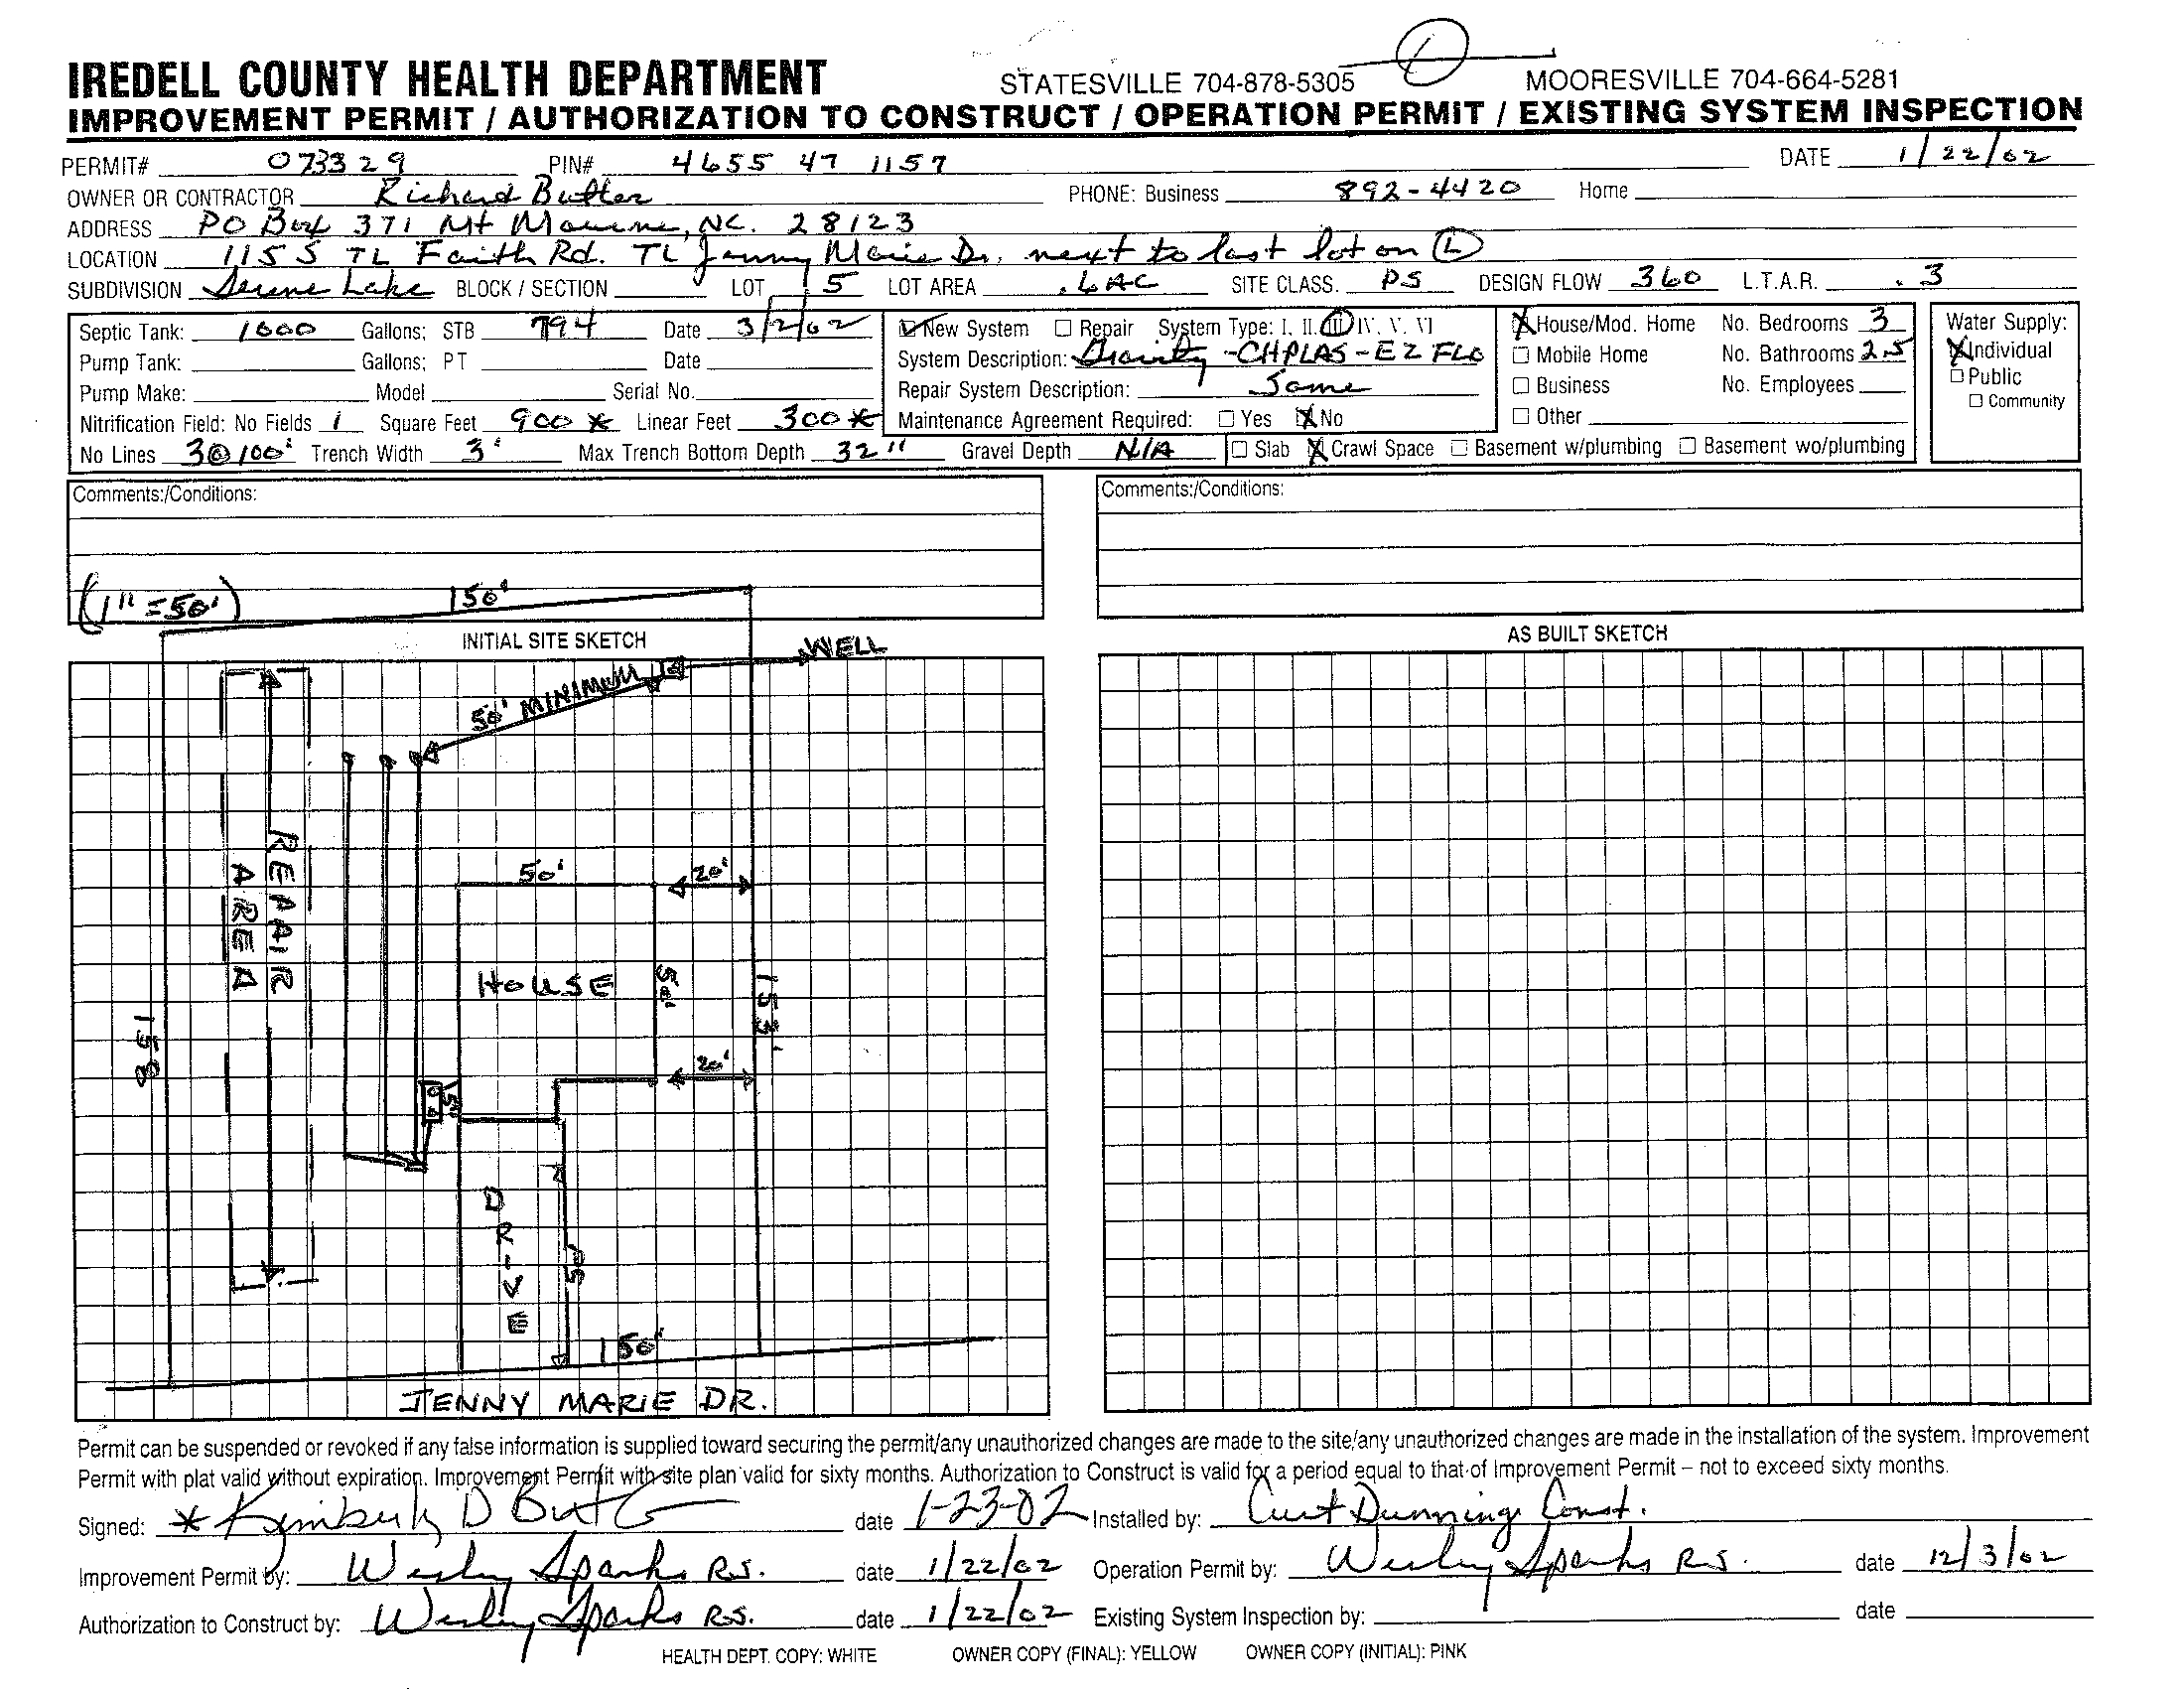 IREDELL COUNTY HEALTH DEPARTMENT STATESVILLE 704-878-5305 MOORESVILLE 704-664-5281
IMPROVEMENT PERMIT / AUTHORIZATION TO CONSTRUCT / OPERATION PERMIT / EXISTING SYSTEM INSPECTION
PERMIT# 073329 PIN# 4655 47 1157 DATE 1/22/02
OWNER OR CONTRACTOR Richard Butler PHONE: Business 892-4420 Home
ADDRESS PO Box 371 Mt Mourne, NC. 28123
LOCATION 115 S TL Faith Rd. TL Jenny Marie Dr. next to last lot on L
SUBDIVISION Serene Lake BLOCK / SECTION LOT 5 LOT AREA .6AC SITE CLASS. PS DESIGN FLOW 360 L.T.A.R. .3
Septic Tank: 1000 Gallons: STB 794 Date 3/2/02
Pump Tank: Gallons: PT Date
Pump Make: Model Serial No.
Nitrification Field: No Fields 1 Square Feet 900 * Linear Feet 300 *
No Lines 3@100' Trench Width 3' Max Trench Bottom Depth 32" Gravel Depth N/A
New System Repair System Type: I, II, III, IV, V, VI
System Description: Gravity -CHPLAS-EZ FLO
Repair System Description: Same
Maintenance Agreement Required: Yes X No
X House/Mod. Home No. Bedrooms 3
Mobile Home No. Bathrooms 2.5
Business No. Employees
Other
Slab X Crawl Space Basement w/plumbing Basement wo/plumbing
Water Supply:
X Individual
Public
Community
Comments:/Conditions:
Comments:/Conditions:
(1" = 50')
150'
INITIAL SITE SKETCH
AS BUILT SKETCH
WELL
50' MINIMUM
REPAIR
AREA
50'
20'
HOUSE
50'
153'
158
20'
5'
DRIVE
50'
150'
JENNY MARIE DR.
Permit can be suspended or revoked if any false information is supplied toward securing the permit/any unauthorized changes are made to the site/any unauthorized changes are made in the installation of the system. Improvement
Permit with plat valid without expiration. Improvement Permit with site plan valid for sixty months. Authorization to Construct is valid for a period equal to that of Improvement Permit – not to exceed sixty months.
Signed: * Kimberly D Butler date 1-23-02 Installed by: Curt Dunning Const.
Improvement Permit by: Wesley Sparks R.S. date 1/22/02 Operation Permit by: Wesley Sparks R.S. date 12/3/02
Authorization to Construct by: Wesley Sparks R.S. date 1/22/02 Existing System Inspection by: date
HEALTH DEPT. COPY: WHITE OWNER COPY (FINAL): YELLOW OWNER COPY (INITIAL): PINK